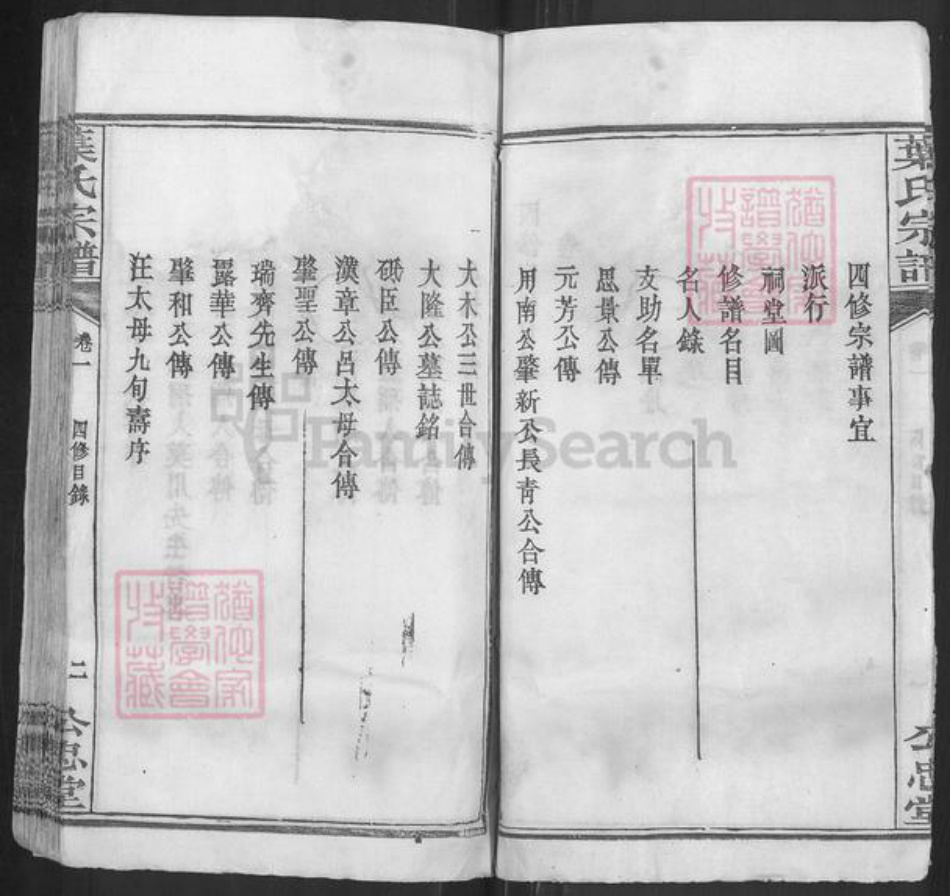 葉氏宗譜
公忠堂
四修宗譜事宜
派行
祠堂圖
修譜名目
名人錄
支助名單
思景公傳
元芳公傳
用南公肇新公長青公合傳
大木公三世合傳
大隆公墓誌銘
硯臣公傳
漢章公呂太母合傳
肇聖公傳
瑞齊先生傳
肇和公傳
汪太母九旬壽序
葉氏宗譜
卷一
四修目錄
二
公忠堂
譜學會
收藏
FamilySearch